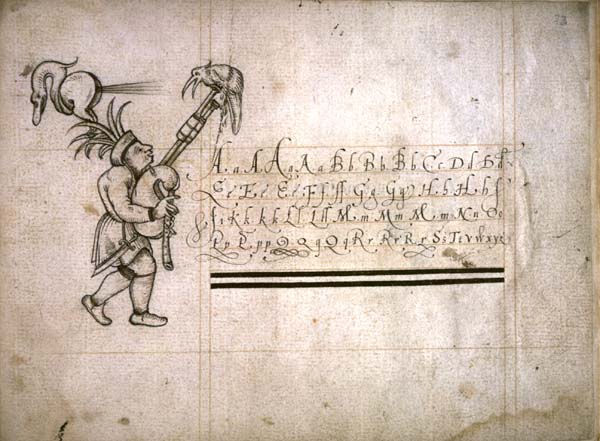 A. a. A. A a A a B b B b B b C c D d D d.
E e E e E e F f ff G g G g H. h H. h I
i. K k. k k L l L ll M. m M m M. m N n O o
P p P. p p Q Q q Q q R r. R r R r S s T t v w x y z